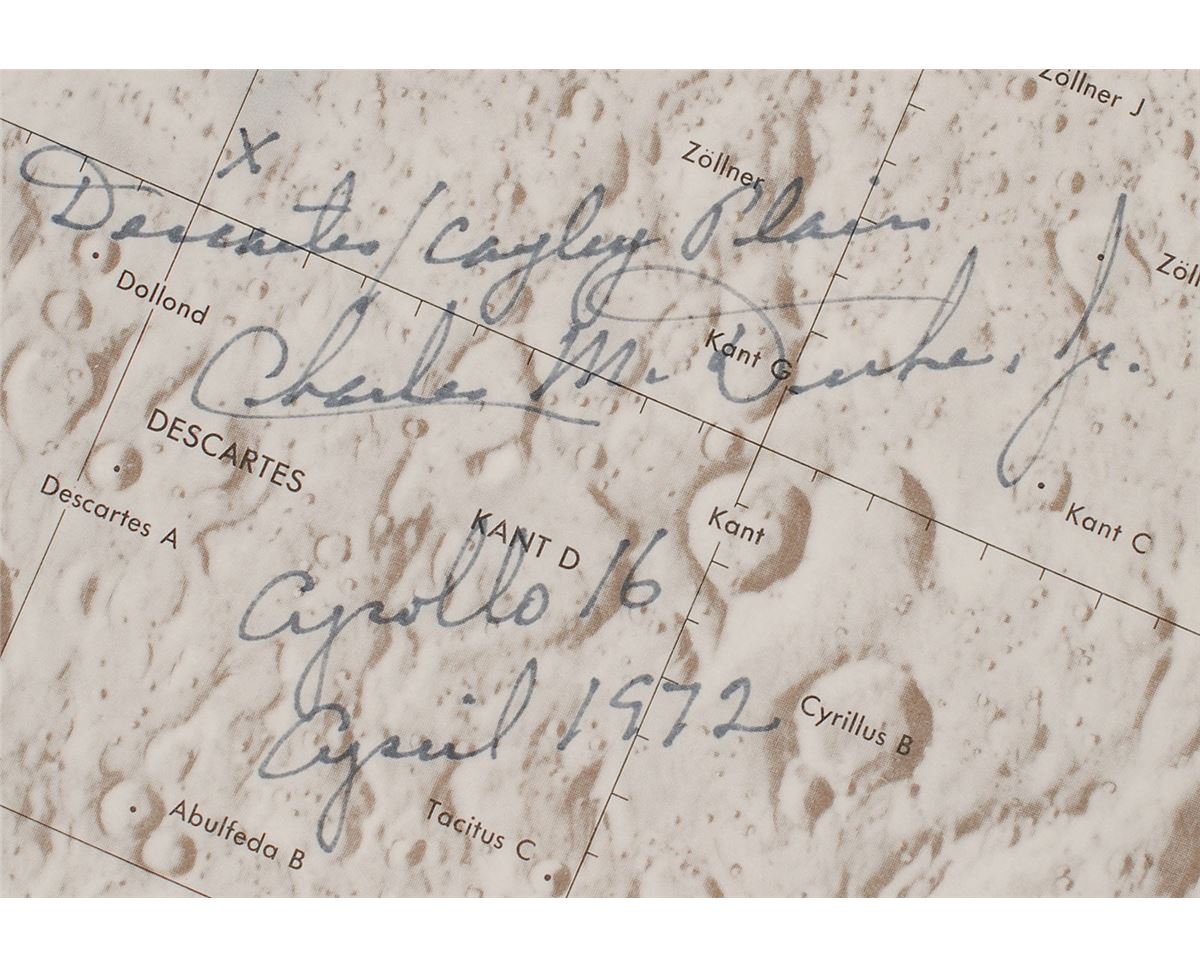 Zöllner J
X
Zöllner
Descartes/Cayley Plain
Zöll
Dollond
Kant G
Charles M. Duke, Jr.
DESCARTES
Descartes A
Kant C
KANT D
Kant
Apollo 16
April 1972
Cyrillus B
Abulfeda B
Tacitus C